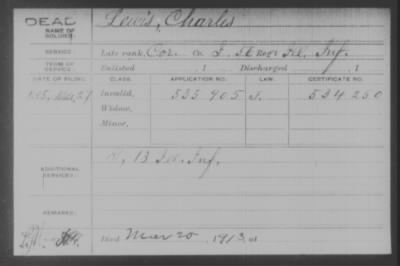 DEAD
NAME OF SOLDIER:
Lewis, Charles
SERVICE:
Late rank, Cor. Co. I, Reg't Ill. Inf.
TERM OF SERVICE:
Enlisted , 1 Discharged , 1
DATE OF FILING. CLASS. APPLICATION NO. LAW. CERTIFICATE NO.
27 Invalid, 535 905 J. 534 250
Widow,
Minor,
ADDITIONAL SERVICES:
13 Ill. Inf.
REMARKS:
Died Mar 20, 1913, at